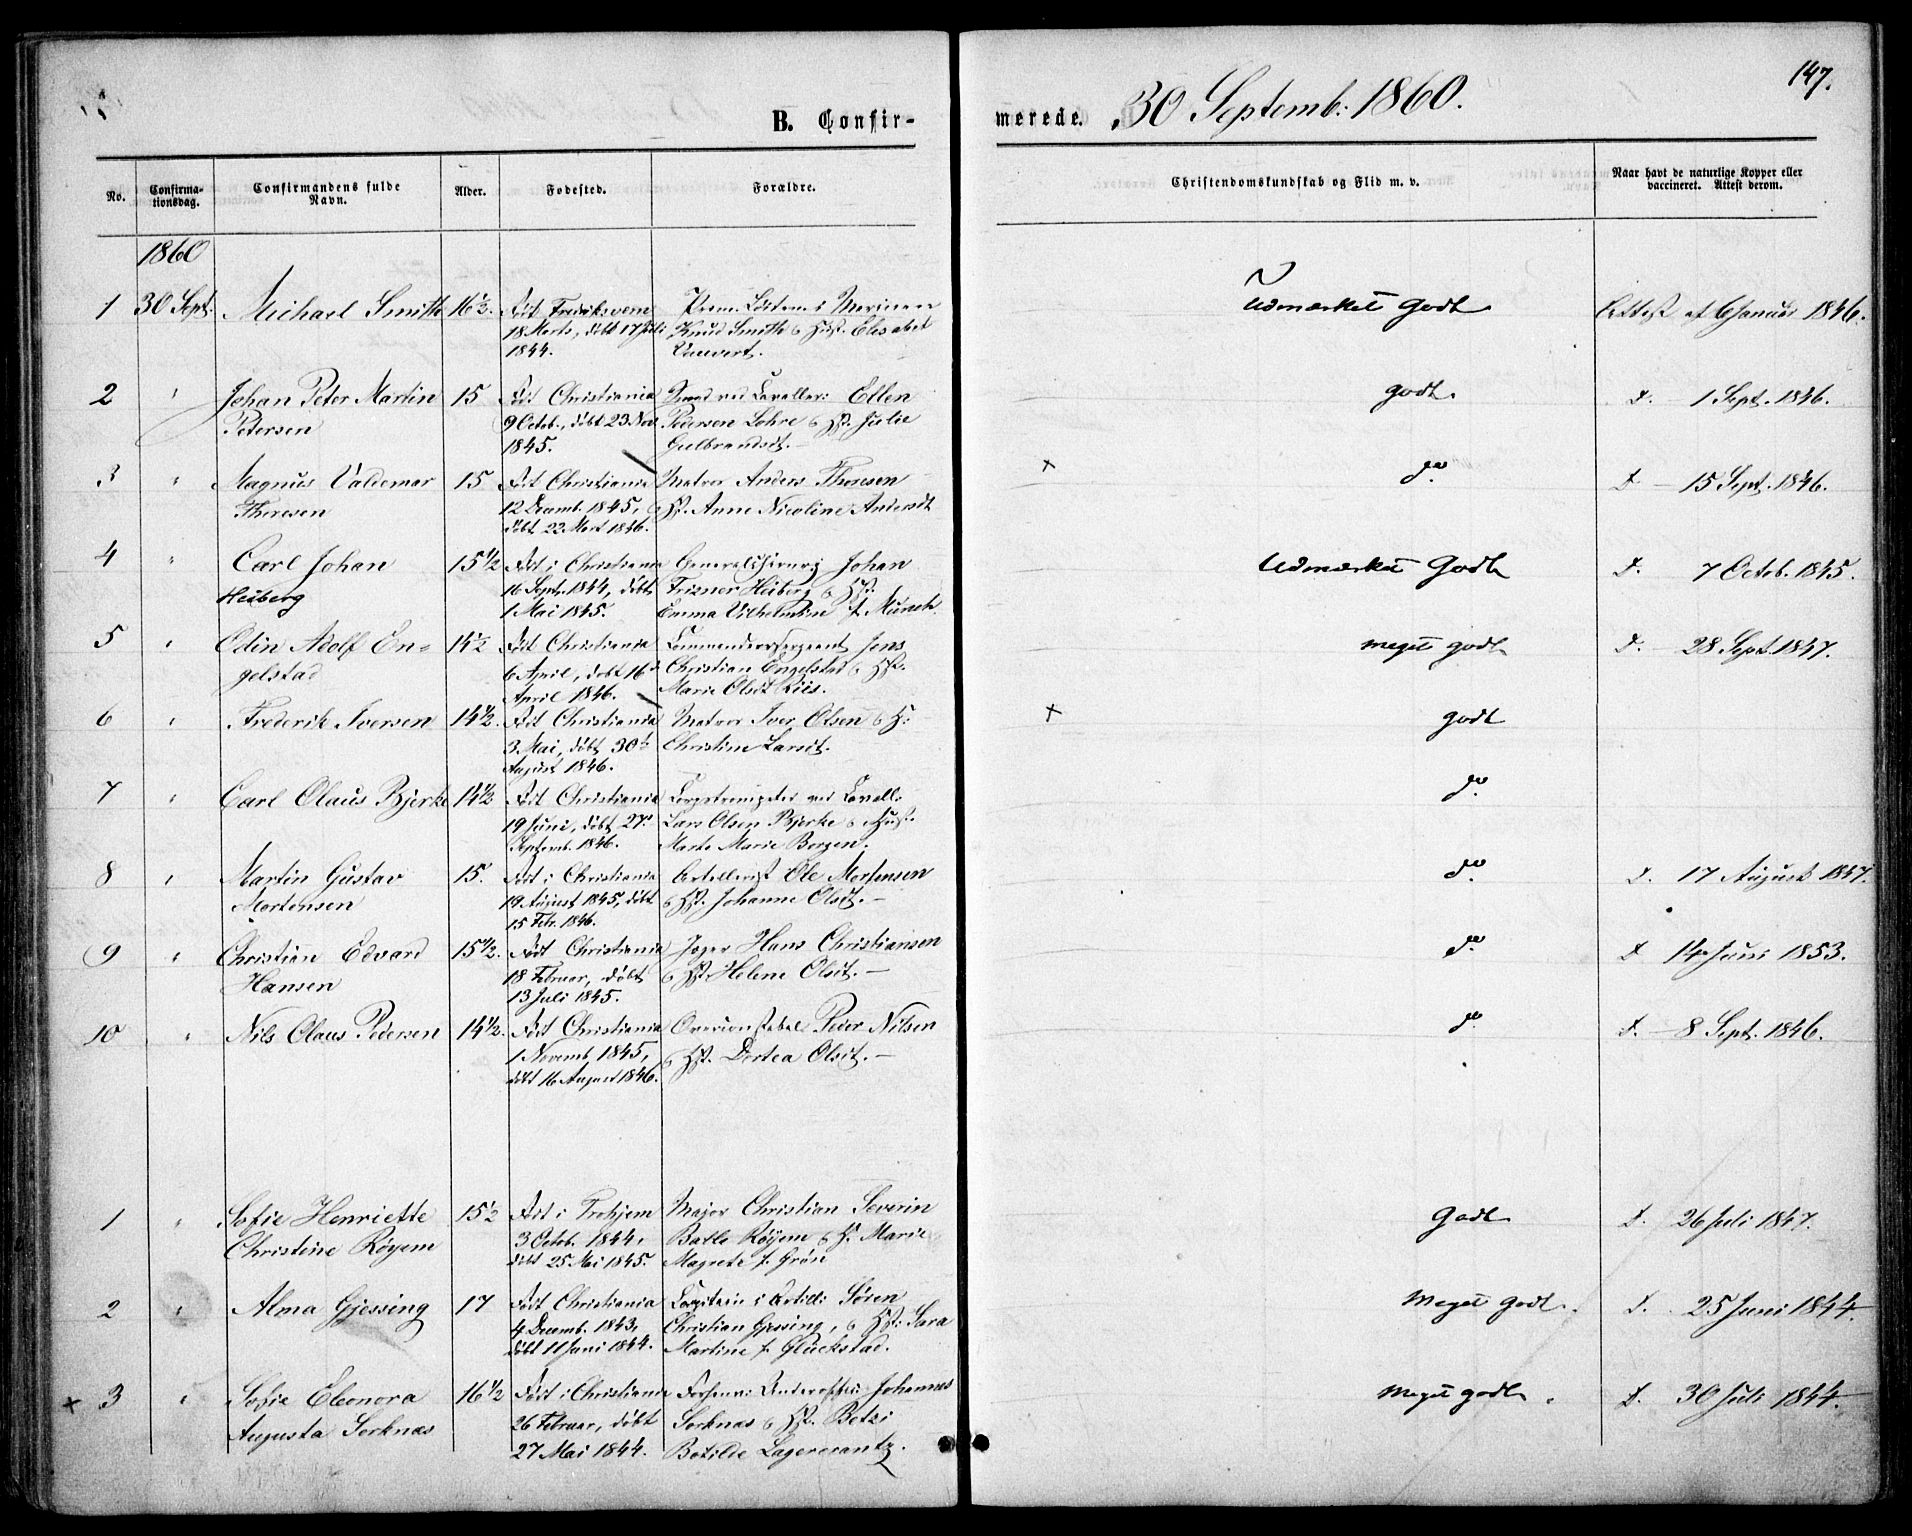 147.
B. Confirmerede. 30 Septemb: 1860.
No. Confirmationsdag. Confirmandens fulde Navn. Alder. Fødested. Forældre. Christendomskundskab og Flid m. v. Naar havt de naturlige Kopper eller vaccineret. Attest derom.
1860
1 30 Sept: Michael Smith 16½. Født Fredriksvern Prem. Løitn. i Marinen Udmærket Godt Attest af 6 Januar 1846.
18 Marts, døbt 17 Juli Knud Smith & Hust. Elisabet
1844. Vauvert.
2 " Johan Peter Martin 15 Født Christiania Svend ved Cavalleri Ellen godt. D. 1 Sept. 1846.
Petersen 9 Octob., døbt 23 Nov. Pedersen Lohre & Hst. Julie
1845. Gulbrandsdt. —
3 " Magnus Valdemar 15 Født Christiania Matros Anders Thoresen + do. D — 15 Sept. 1846.
Thoresen 12 Decemb. 1845, & Hst. Anne Nicoline Andersdt
døbt 22 Mart 1846.
4 " Carl Johan 15½ Født i Christiania Generalchirurg Johan Udmærket Godt D. 7 Octob. 1845.
Heiberg 16 Sept. 1844, døbt Frizner Heiberg & Hst.
1 Mai 1845. Emma Vilhelmine f. Münch
5 " Odin Adolf En= 14½ Født Christiania Commandeersergeant Jens meget godt D. — 28 Sept. 1847.
gelstad 6 April, døbt 16 Christian Engelstad & Hst.
April 1846. Marie Olsdt Riis.
6 " Frederik Iversen 14½. Født Christiania Matros Iver Olsen & H: + godt
3 Mai, døbt 30 Christine Larsdt.
August 1846.
7 " Carl Olaus Bjerke 14½ Født Christiania Corpstrompeter ved Cavall: do.
19 Juni, døbt 27 Lars Olsen Bjerke & Hust.
Septemb. 1846. Marte Marie Bergen.
8 " Martin Gustav 15. Født i Christiania Artellerist Ole Mortensen do. D. 17 August 1847.
Mortensen 19 August 1845, døbt & Hst. Johanne Olsdt. —
15 Febr. 1846.
9 " Christian Edvard 15½. Født Christiania Jæger Hans Christiansen do. D 14 Juni 1853.
Hansen 18 Februar, døbt & Hst. Helene Olsdt. —
13 Juli 1845.
10 " Nils Olaus Pedersen 14½. Født Christiania Overconstabel Peder Nilsen do. D. — 8 Sept. 1846.
1 Novemb 1845, & Hst. Dortea Olsdt. —
døbt 16 August 1846.
1 " Sofie Henriette 15½ Født i Trohjem Major Christian Severin Godt D. 26 Juli 1847.
Christine Røyem 3 Octob. 1844, Balle Røyem & H. Marie
døbt 25 Mai 1845. Magrete f. Grøn
2 " Alma Gjessing 17 Født Christiania Capitain i Artilli Søren Meget Godt. D. 25 Juni 1844.
4 Decemb. 1843, Christian Gjessing, & Hst: Sara
døbt 11 Juni 1844. Martine f. Glückstad.
+ 3 " Sofie Eleonora 16½ Født i Christiania Forhenv: Underoffici Johannes Meget godt. D. 30 Juli 1844.
Augusta Sorknæs 26 Februar, døbt Sorknæs & Hst. Betzi
27 Mai 1844. Botilde Lagercrantz.